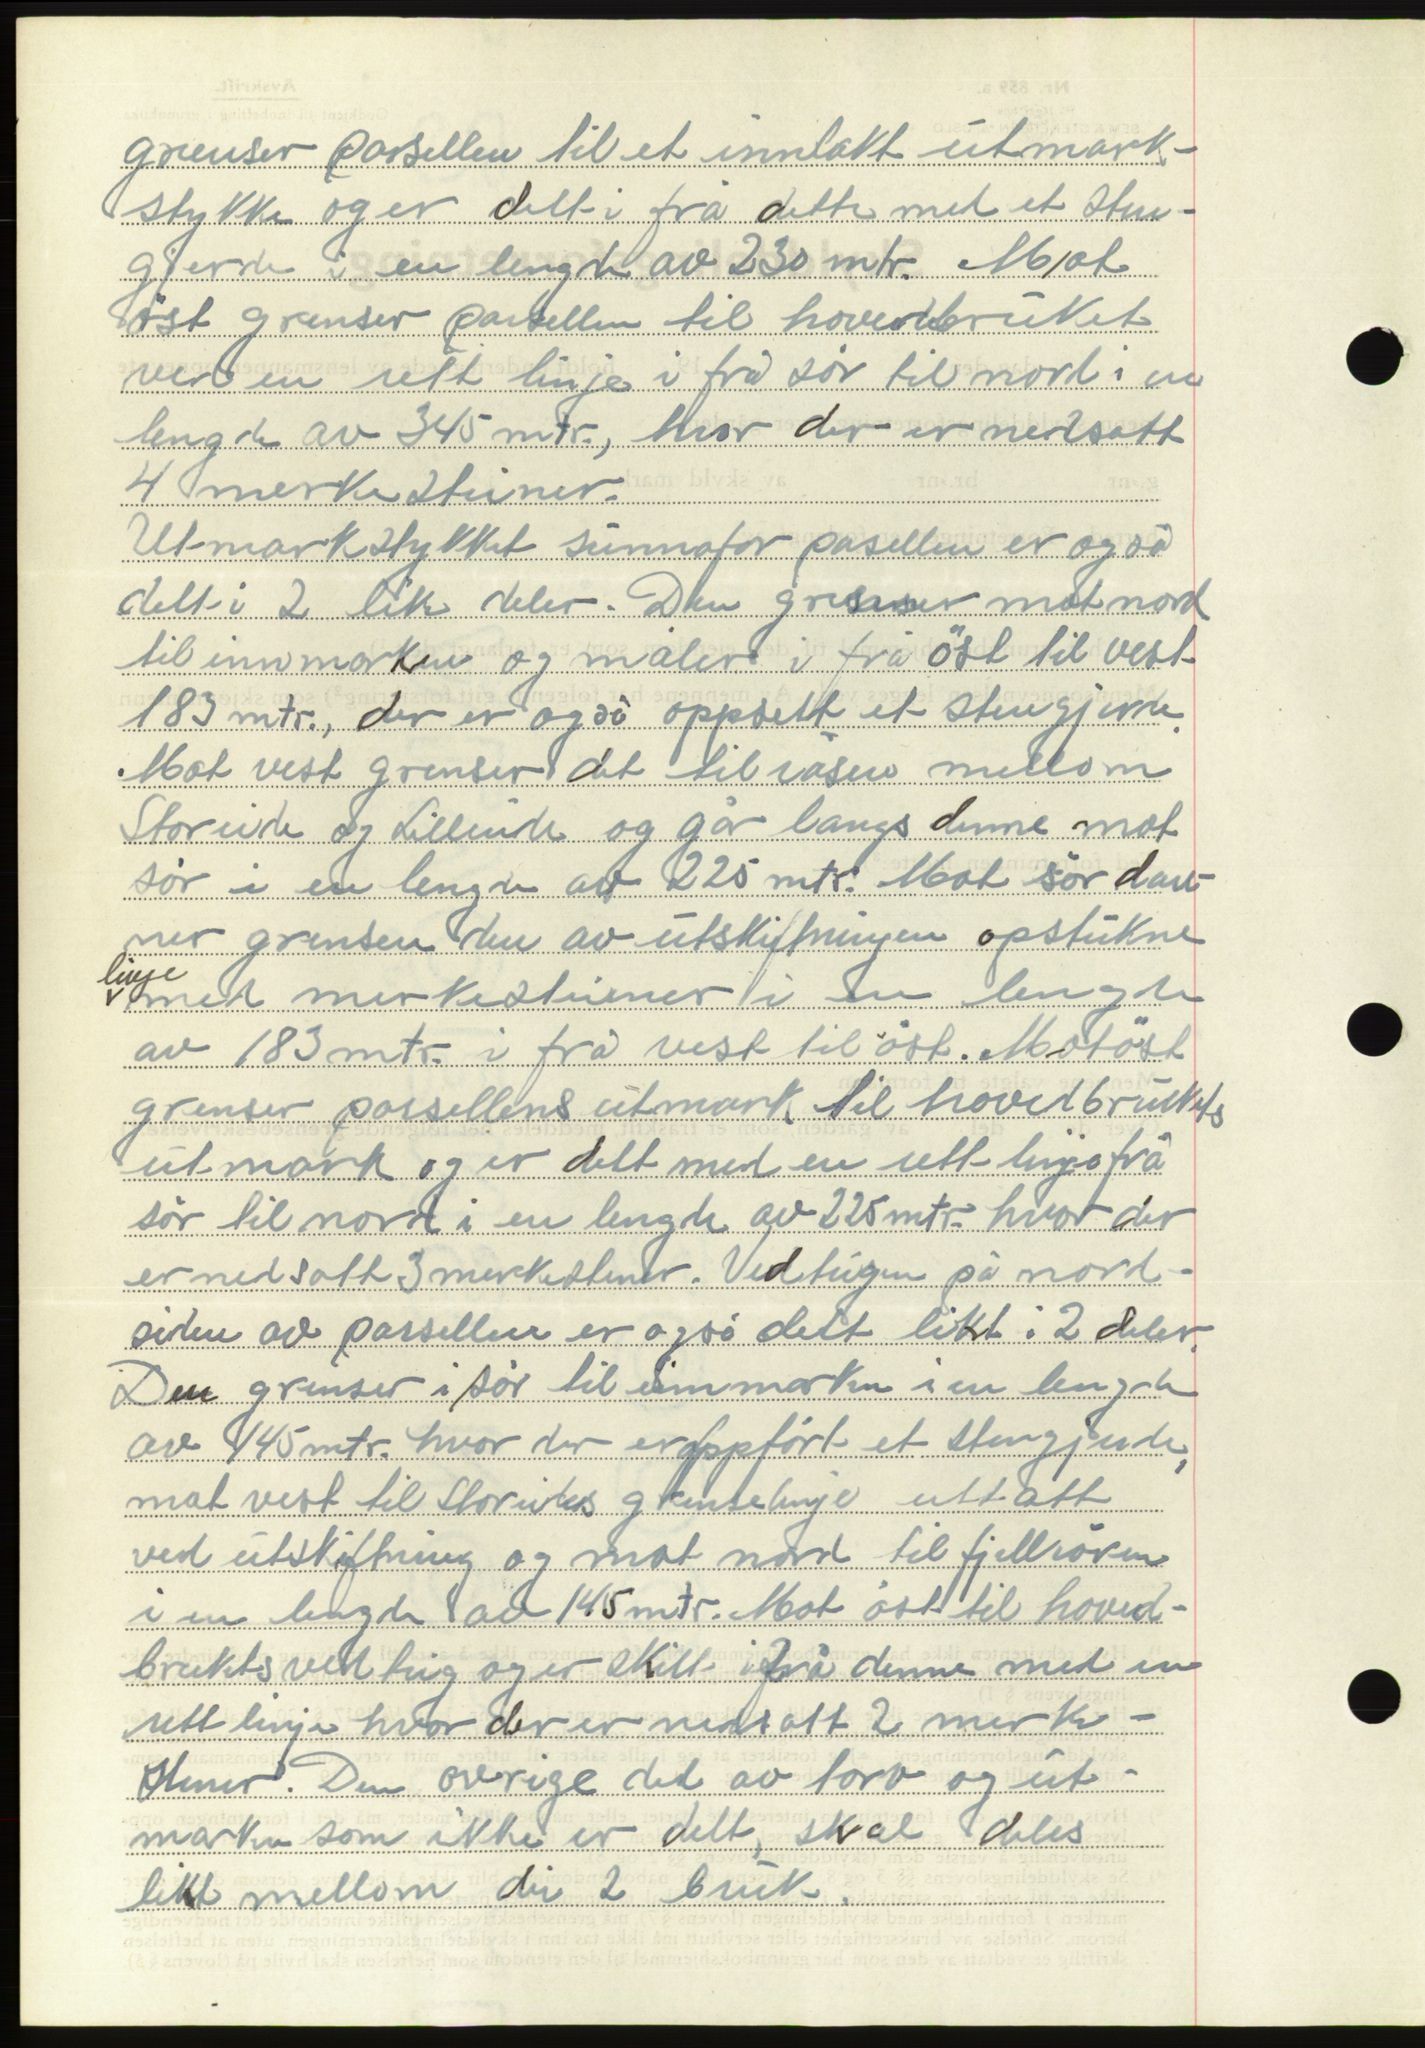 grenser parsellen til et innlakt utmark-
stykke og er delt i frå dette med et sten-
gjerde i en lengde av 230 mtr. Mot
öst grenser parsellen til hovedbruket
ved en rett linje i frå sör til nord i en
lengde av 345 mtr., hvor der er nedsatt
4 merkesteiner.
Utmarkstykket sunnafor pasellen er også
delt i 2 like deler. Den grenser mot nord
til innmarken og måler i frå öst til vest
183 mtr., der er også oppsett et stengjerde.
Mot vest grenser det til råsen mellom
Storeide og Lilleeide og går langs denne mot
sör i en lengde av 225 mtr. Mot sör dan-
ner grensen den av utskiftningen opstukne
linje
med merkesteiner i en lengde
av 183 mtr. i frå vest til öst. Mot öst
grenser parsellens utmark til hovedbrukets
utmark og er delt med en rett linje frå
sör til nord i en lengde av 225 mtr. hvor der
er nedsatt 3 merkestener. Vedteigen på nord-
siden av parsellen er også delt likt i 2 deler.
Den grenser i sör til innmarken i en lengde
av 145 mtr. hvor der er oppfört et stengjerde,
mot vest til Storeides grenselinje uttatt
ved utskiftning og mot nord til fjellrören
i en lengde av 145 mtr. Mot öst til hoved-
brukets vedteig og er skilt ifrå denne med en
rett linje hvor der er nedsatt 2 merke-
stener. Den øvrige del av torv og ut-
marken som ikke er delt, skal deles
likt mellom dei 2 bruk.